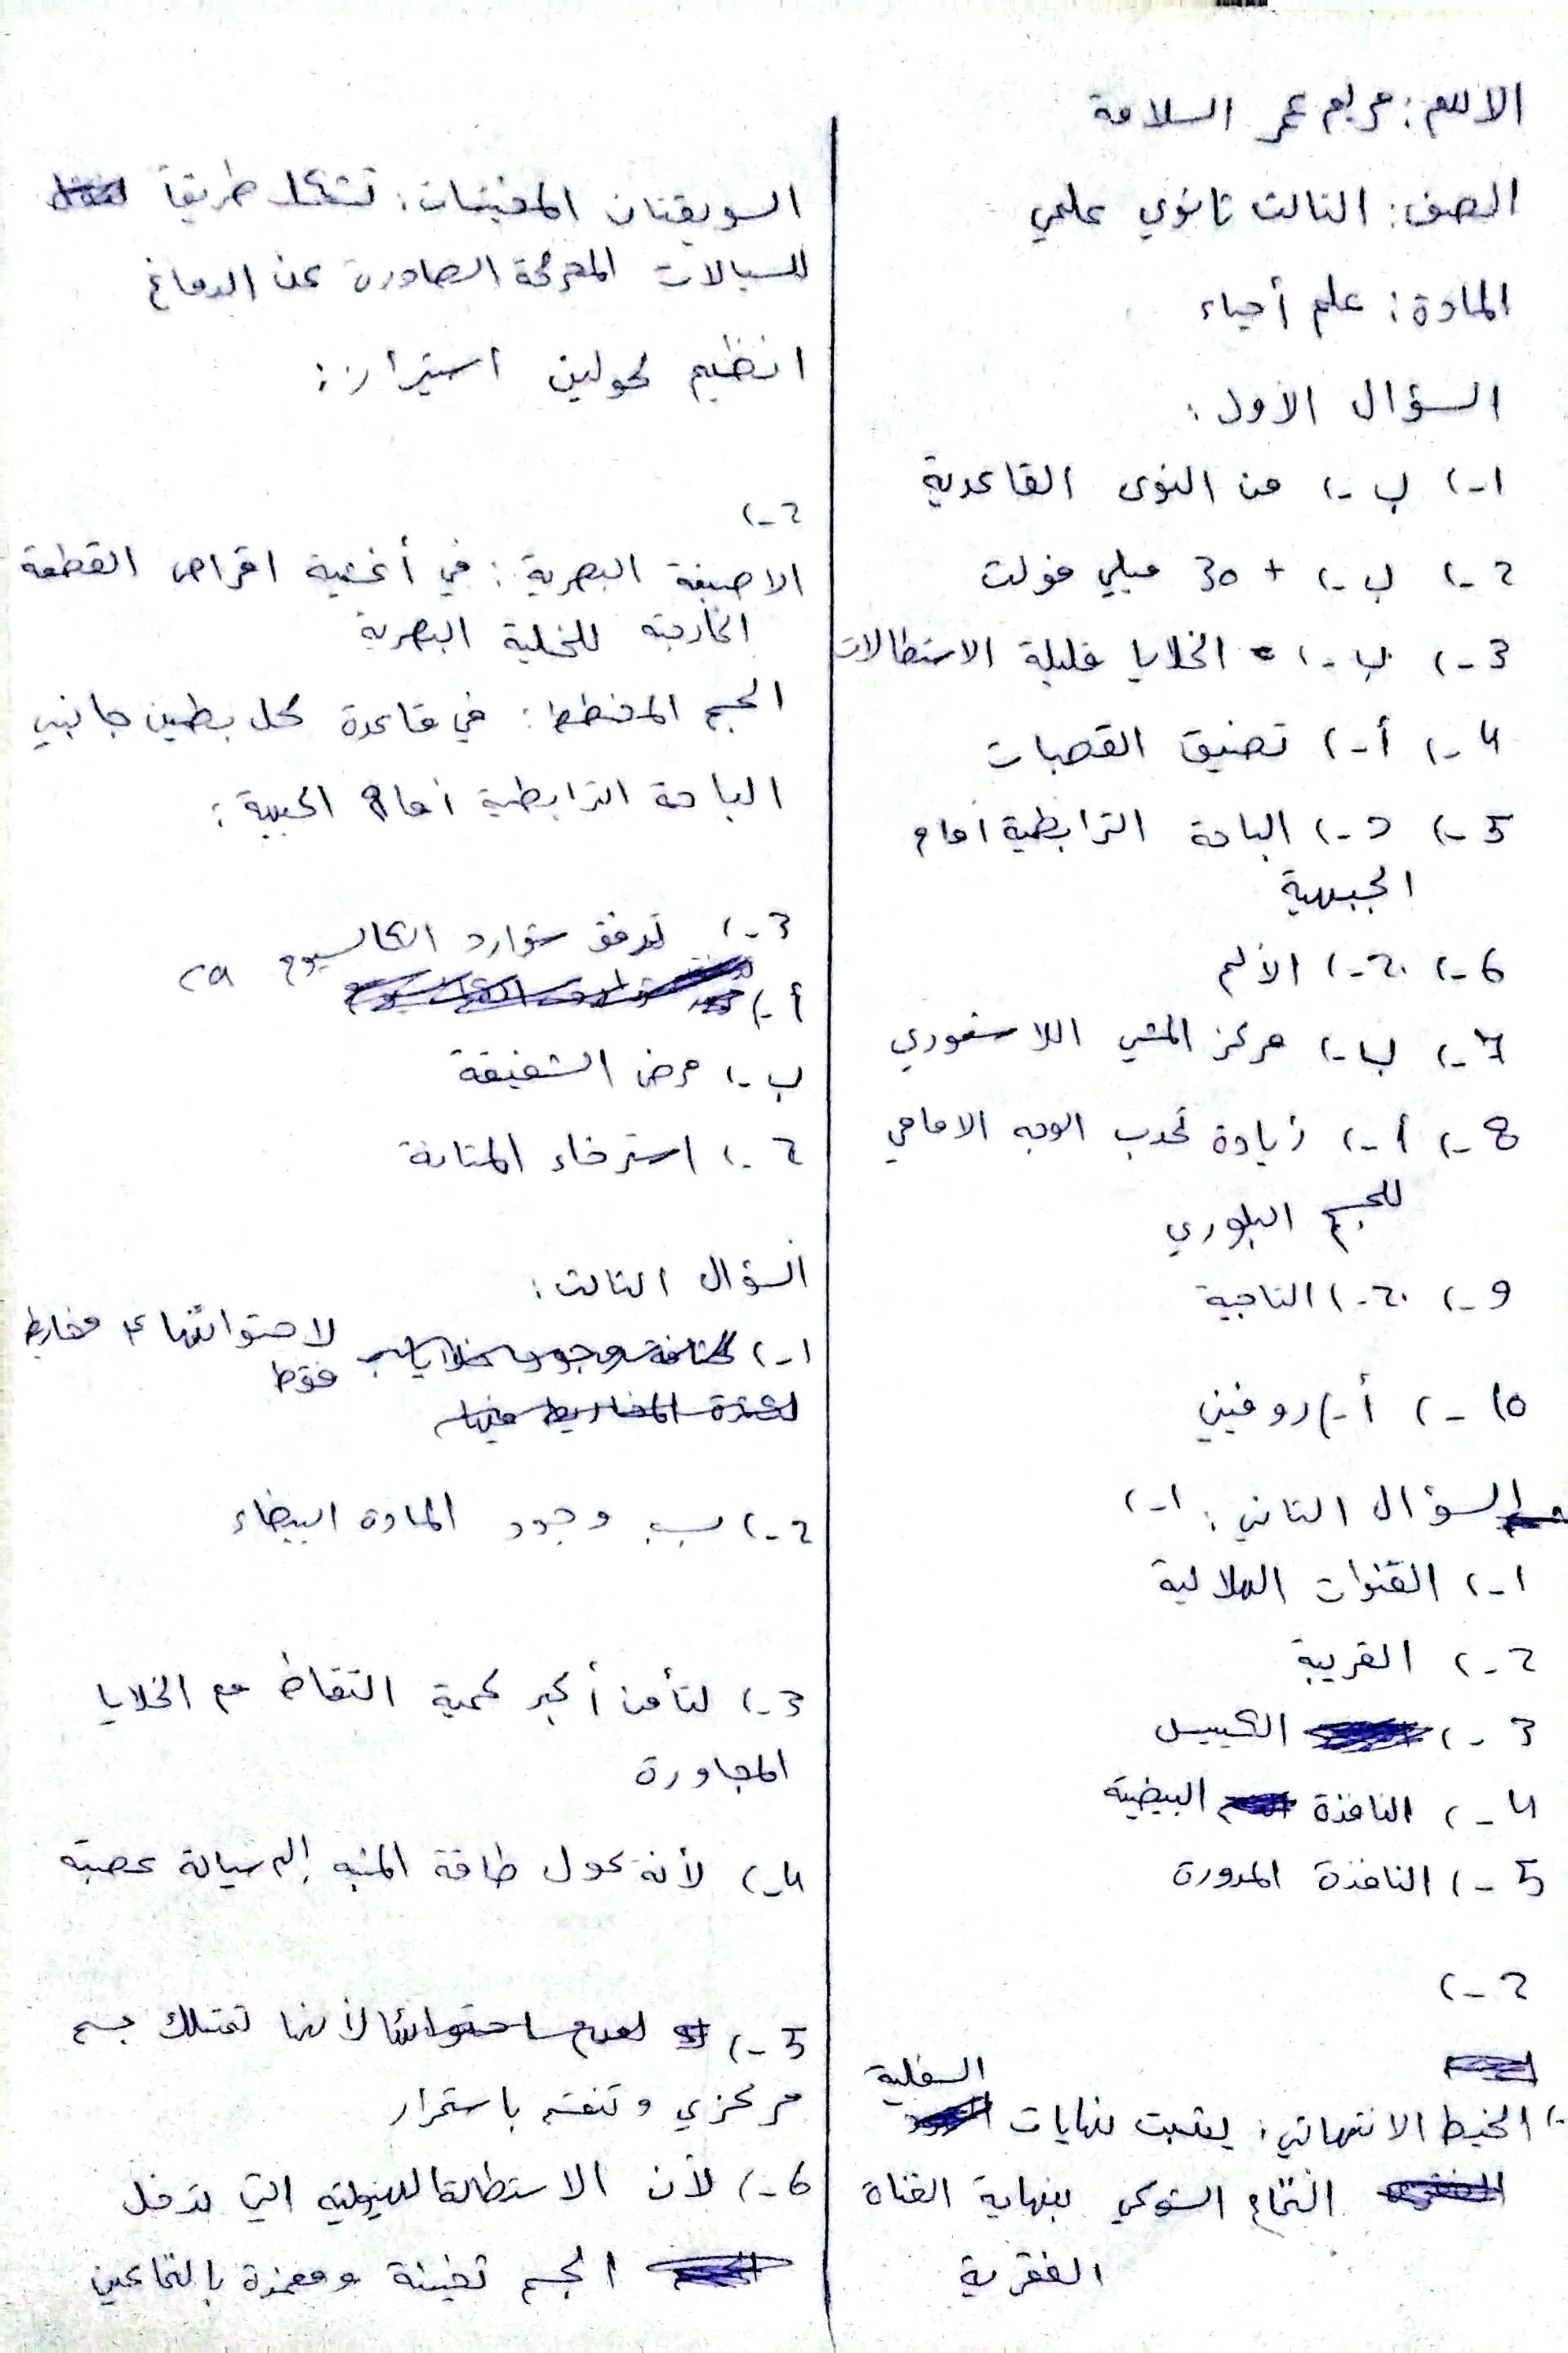 الاسم: مريم عمر السلامة
الصف: الثالث ثانوي علمي
المادة: علم أحياء
السؤال الأول:
1-) ب-) من النوى القاعدية
2-) ب-) + 30 ميلي فولت
3-) ب-) الخلايا قليلة الاستطالات
4-) أ-) تضيق القصبات
5-) د-) الباحة الترابطية أمام
الجبهية
6-) ج-) الألم
7-) ب-) مركز المشي اللاشعوري
8-) أ-) زيادة تحدب الوجه الامامي
للجسم البلوري
9-) ج-) التاجية
10-) أ-) روفيني
السؤال الثاني: 1-)
1-) القنوات الهلالية
2-) القريبة
3-) الكييس
4-) النافذة البيضية
5-) النافذة المدورة
2-)
الخيط الانتهائي: يثبت نهايات السفلية
النخاع الشوكي بنهاية القناة
الفقرية
السويقتان المخيتان: تشكل طريقاً
للسيالات المحركة الصادرة عن الدماغ
انظيم كولين استيراز:
2-)
الاصبغة البصرية: في أغشية اقراص القطعة
الخارجية للخلية البصرية
الجسم المخطط: في قاعدة كل بطين جانبي
الباحة الترابطية أمام الجبهية:
3-) تدفق شوارد الكالسيوم ca
أ-)
ب-) مرض الشقيقة
ج-) استرخاء المثانة
السؤال الثالث:
1-) لاحتوائها ع مخاريط
فقط
2-) بسبب وجود المادة البيضاء
3-) لتأمن أكبر كمية التقاط مع الخلايا
المجاورة
4-) لأنه يحول طاقة المنبه إلى سيالة عصبية
5-) لأنها تمتلك جسم
مركزي وتنقسم باستمرار
6-) لأن الاستطالة الهيولية التي تدخل
الجسم ثخينة ومغمدة بالنخاعين